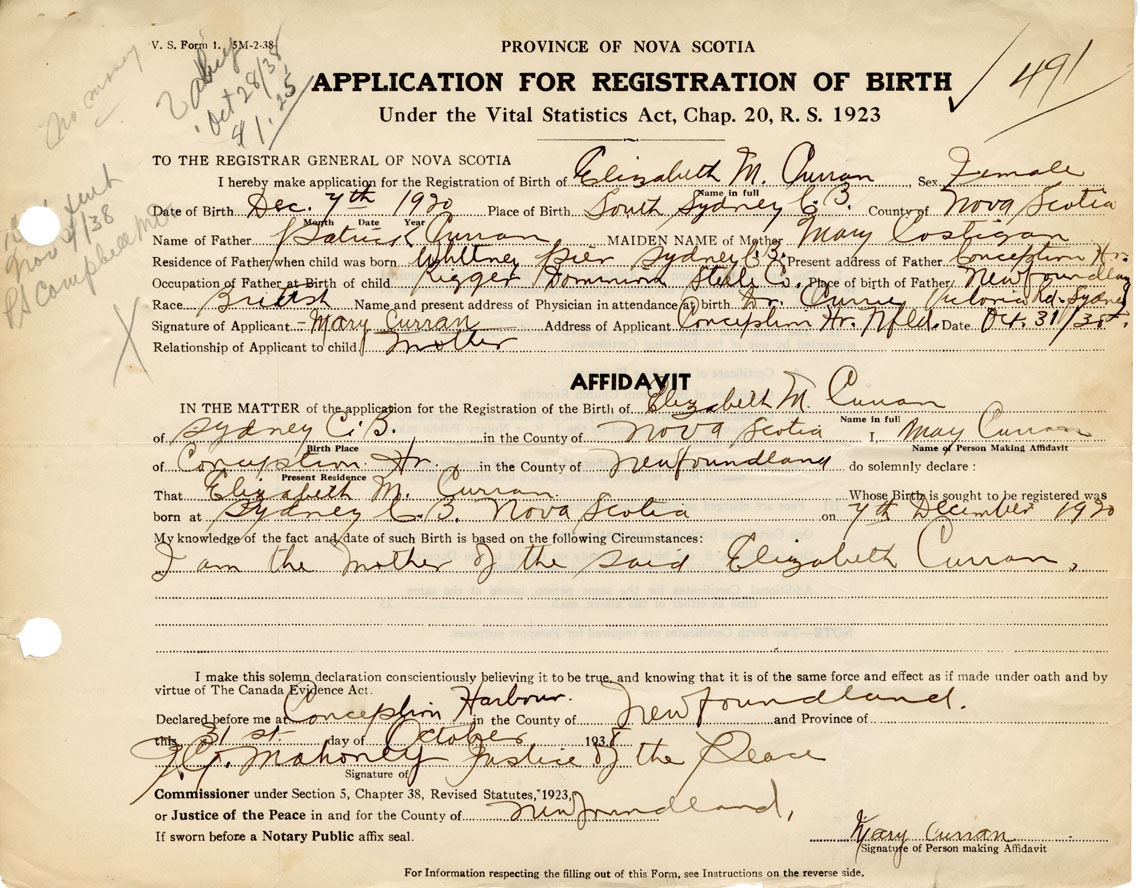 V. S. Form 1. 5M-2-38
no money
Oct 28/38
$1.25
491
PROVINCE OF NOVA SCOTIA
APPLICATION FOR REGISTRATION OF BIRTH
Under the Vital Statistics Act, Chap. 20, R. S. 1923
TO THE REGISTRAR GENERAL OF NOVA SCOTIA
I hereby make application for the Registration of Birth of Elizabeth M. Curran, Sex Female
Name in full
Date of Birth Dec. 7th 1920 Place of Birth South Sydney C.B. County of Nova Scotia
Month Date Year
Name of Father Patrick Curran MAIDEN NAME of Mother Mary Costigan
Residence of Father when child was born Whitney Pier Sydney C.B. Present address of Father Conception Hr.
Occupation of Father at Birth of child Rigger Dominion Steele Co. Place of birth of Father Newfoundland
Race British Name and present address of Physician in attendance at birth Dr. Currie Victoria Rd. Sydney
Signature of Applicant - Mary Curran Address of Applicant Conception Hr. Nfld. Date Oct. 31/38.
Relationship of Applicant to child Mother
AFFIDAVIT
IN THE MATTER of the application for the Registration of the Birth of Elizabeth M. Curran
Name in full
of Sydney C.B. in the County of Nova Scotia I, Mary Curran
Birth Place Name of Person Making Affidavit
of Conception Hr. in the County of Newfoundland do solemnly declare :
Present Residence
That Elizabeth M. Curran Whose Birth is sought to be registered was
born at Sydney C.B. Nova Scotia on 7th December 1920
My knowledge of the fact and date of such Birth is based on the following Circumstances:
I am the Mother of the said Elizabeth Curran,
I make this solemn declaration conscientiously believing it to be true, and knowing that it is of the same force and effect as if made under oath and by
virtue of The Canada Evidence Act.
Declared before me at Conception Harbour. in the County of Newfoundland. and Province of
this 31st day of October 1938
Mahoney Justice of the Peace
Signature of
Commissioner under Section 5, Chapter 38, Revised Statutes, 1923,
or Justice of the Peace in and for the County of Newfoundland,
If sworn before a Notary Public affix seal.
Mary Curran
Signature of Person making Affidavit
For Information respecting the filling out of this Form, see Instructions on the reverse side.